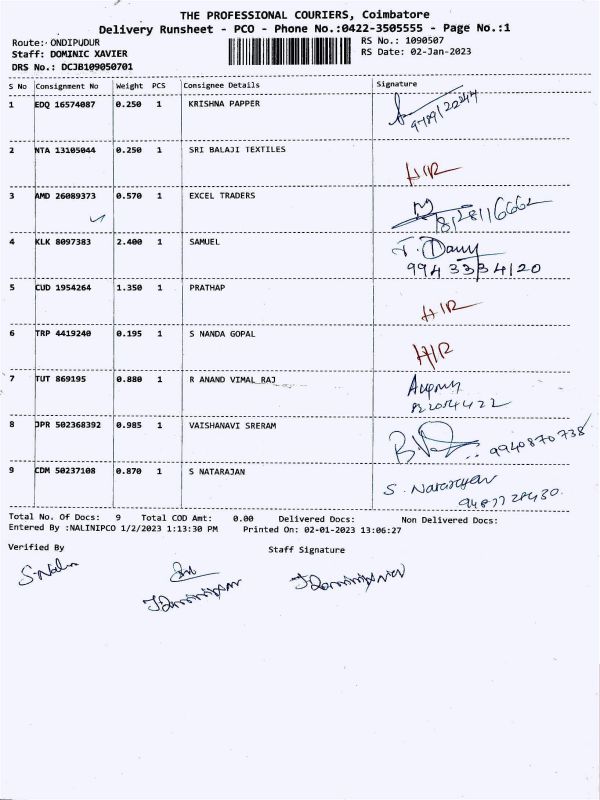 THE PROFESSIONAL COURIERS, Coimbatore
Delivery Runsheet - PCO - Phone No.:0422-3505555 - Page No.:1
Route: ONDIPUDUR
RS No.: 1090507
Staff: DOMINIC XAVIER
RS Date: 02-Jan-2023
DRS No.: DCJB109050701
S No Consignment No Weight PCS Consignee Details Signature
1 EDQ 16574087 0.250 1 KRISHNA PAPPER
2 NTA 13105044 0.250 1 SRI BALAJI TEXTILES
H/R
3 AMD 26089373 0.570 1 EXCEL TRADERS
8128116662
4 KLK 8097383 2.400 1 SAMUEL
9943334120
5 CUD 1954264 1.350 1 PRATHAP
H/R
6 TRP 4419240 0.195 1 S NANDA GOPAL
H/R
7 TUT 869195 0.880 1 R ANAND VIMAL RAJ
8 JPR 502368392 0.985 1 VAISHANAVI SRERAM
9940870738
9 CDM 50237108 0.870 1 S NATARAJAN
S. Natarajan
9487728430.
Total No. Of Docs: 9 Total COD Amt: 0.00 Delivered Docs: Non Delivered Docs:
Entered By :NALINIPCO 1/2/2023 1:13:30 PM Printed On: 02-01-2023 13:06:27
Verified By Staff Signature